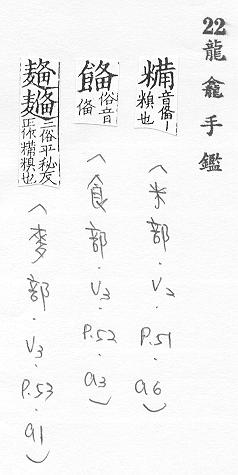 22龍龕手鑑
糒 音俻｜糗也
（米部．V2．P.51．a6）
俗音俻
（食部．V3．P.52．a3）
三俗平秘反正作糒糗也
（麥部．V3．P.53．a1）